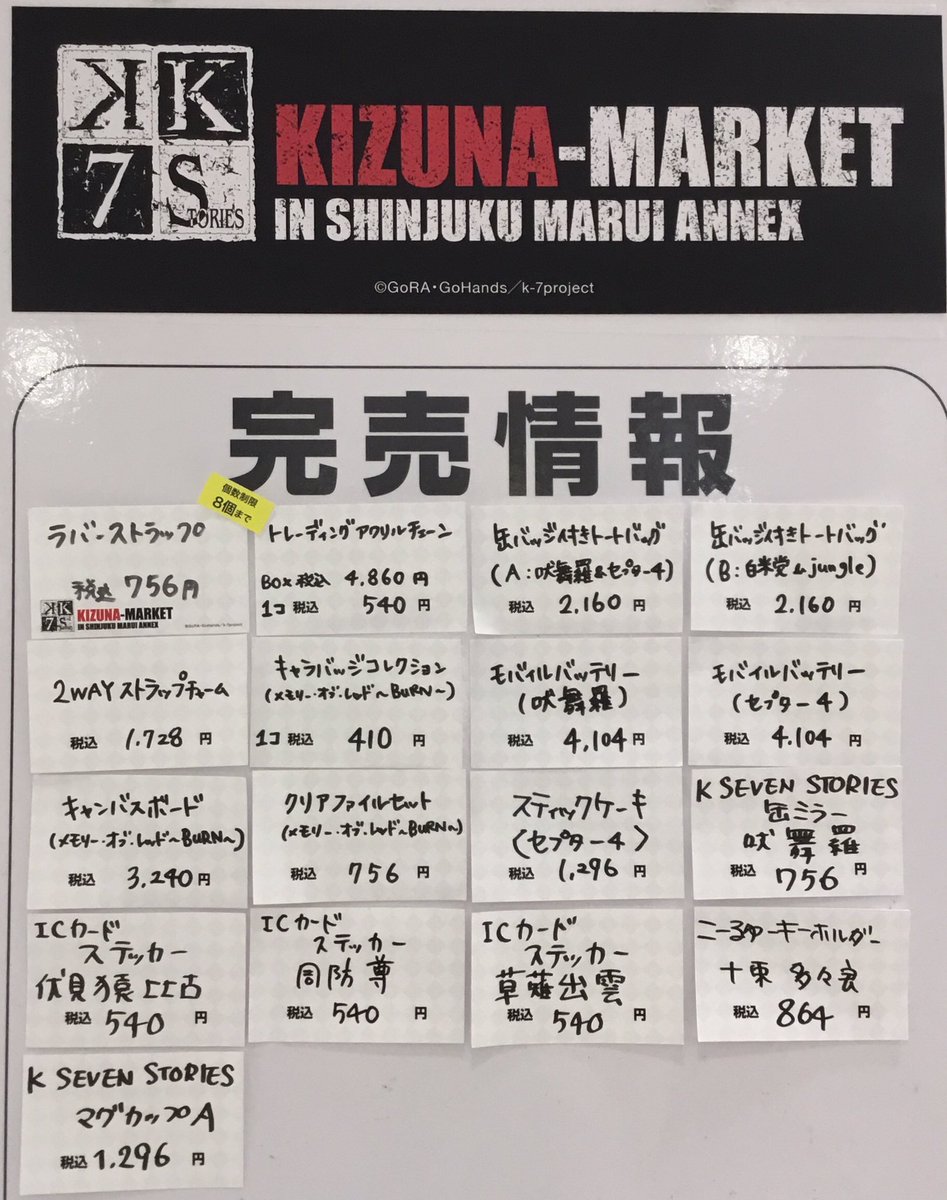 KK
7 STORIES
KIZUNA-MARKET
IN SHINJUKU MARUI ANNEX
©GoRA・GoHands／k-7project
完売情報
個数制限
8個まで
ラバーストラップ
税込 756円
KK
7S
KIZUNA-MARKET
IN SHINJUKU MARUI ANNEX
トレーディングアクリルチェーン
BOX 税込 4.860 円
1コ 税込 540 円
缶バッジ付きトートバッグ
(A:吠舞羅&セプター4)
税込 2.160 円
缶バッジ付きトートバッグ
(B:白米党&jungle)
税込 2.160 円
2WAYストラップチャーム
税込 1.728 円
キャラバッジコレクション
(メモリー・オブ・レッド～BURN～)
1コ 税込 410 円
モバイルバッテリー
(吠舞羅)
税込 4,104円
モバイルバッテリー
(セプター4)
税込 4.104 円
キャンバスボード
(メモリー・オブ・レッド～BURN～)
税込 3.240円
クリアファイルセット
(メモリー・オブ・レッド～BURN～)
税込 756 円
スティックケーキ
(セプター4)
税込 1,296 円
K SEVEN STORIES
缶ミラー
吠舞羅
税込 756 円
ICカード
ステッカー
伏見猿比古
税込 540 円
ICカード
ステッカー
周防 尊
税込 540 円
ICカード
ステッカー
草薙出雲
税込 540 円
キーホルダー
十束 多々良
税込 864 円
K SEVEN STORIES
マグカップA
税込 1.296 円